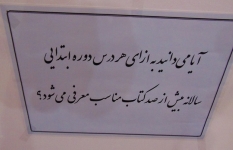 آیا می دانید به ازای هر درس دوره ابتدایی
سالانه بیش از صد کتاب مناسب معرفی می شود؟